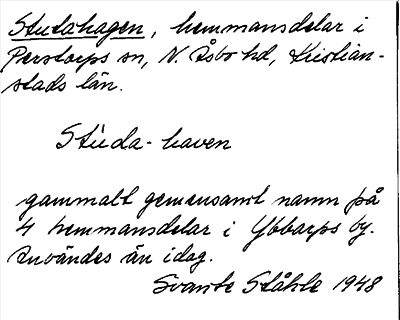 Studahagen, hemmansdelar i
Perstorps sn, N. Åsbo hd, Kristian-
stads län.
Stùda-haven
gammalt gemensamt namn på
4 hemmansdelar i Ybbarps by.
Användes än idag.
Svante Ståhle 1948